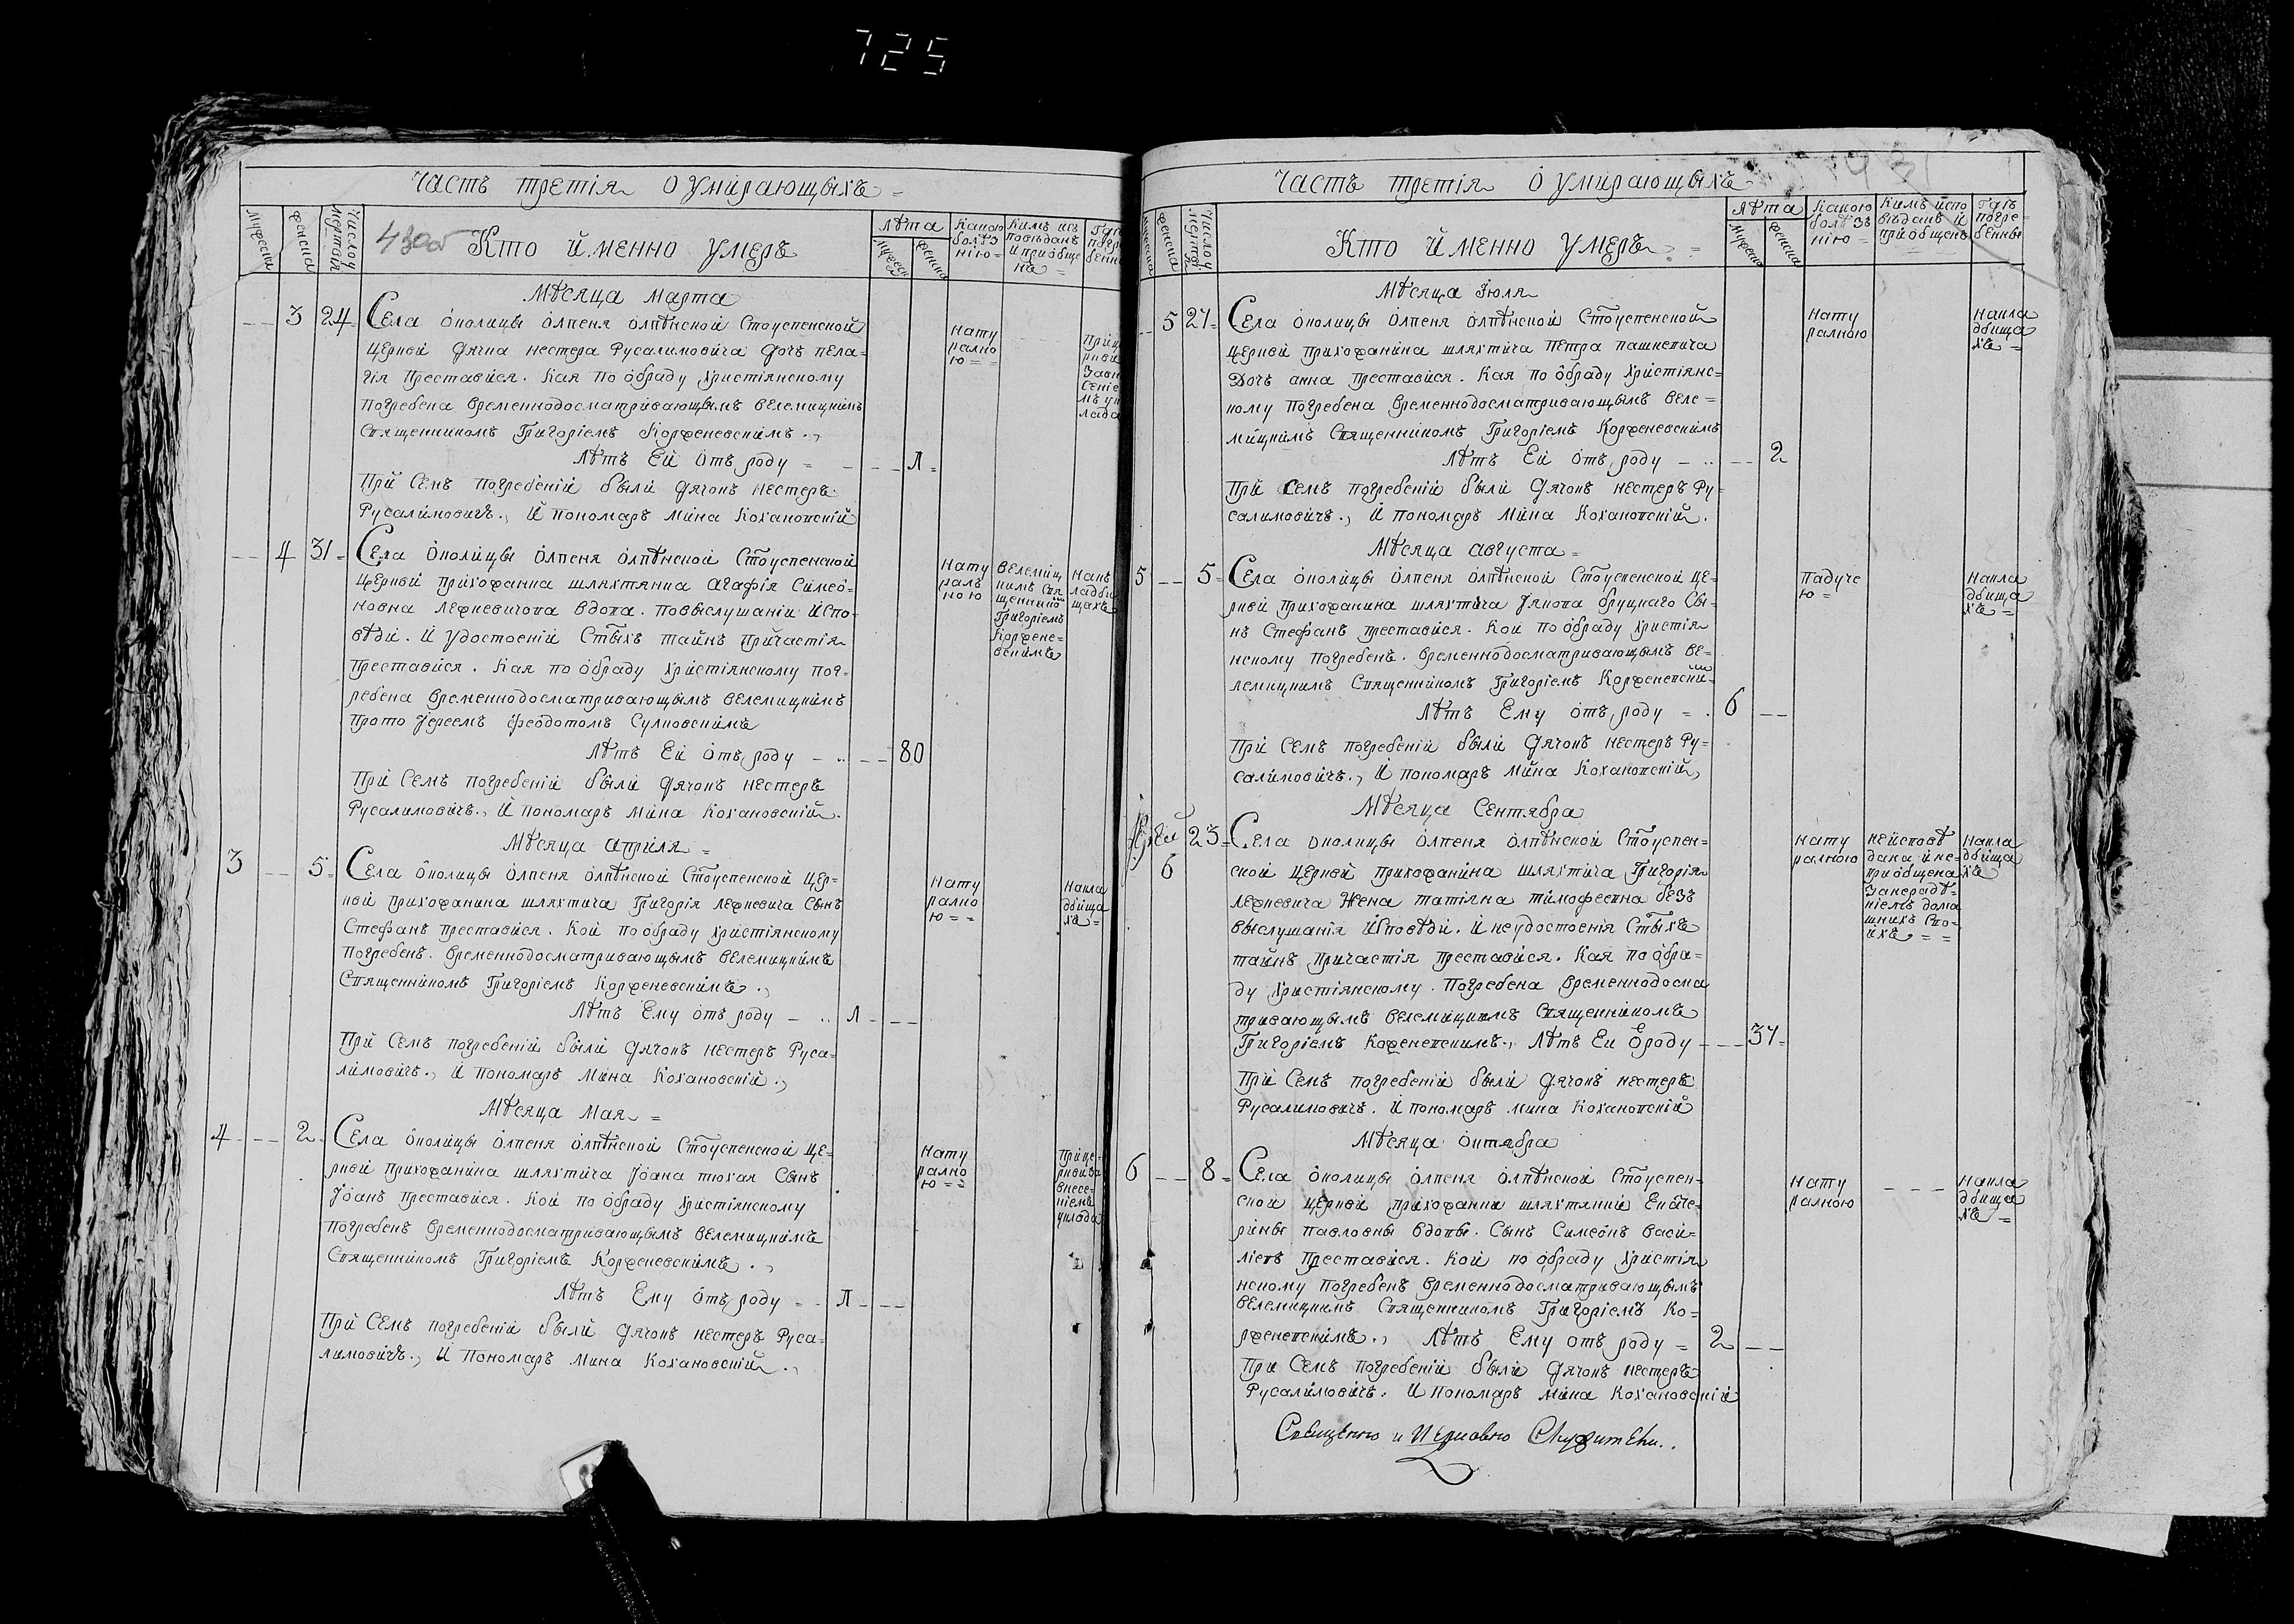 725
Часть третія о умирающыхъ
430об
Мужеска
Женска
Число умертвія
Кто именно умеръ
Лѣта
Мужеска
Женска
Какою болѣзнію
Кимъ исповѣданъ и приобщенъ
Месяца марта
3 24 Села околицы олпеня олпѣнской Стоуспенской
церкви дячка нестера Русалимовича дочь пела-
гія преставися. кая по обраду христіянскому
погребена временнодосматривающымъ велемицкимъ
Священникомъ Григоріемъ Корженевскимъ.,
Лѣтъ Ей отъ роду - - Л
При семъ погребеніи были дячокъ нестеръ
Русалимовичъ., и пономаръ мина кохановскій
Нату
рално
ю
4 31 Села околицы олпеня олпѣнской Стоуспенской
церкви прихожанка шляхтянка агафія симео-
новна ледневичова вдова. повыслушаніи испо-
вѣди. и удостоеніи стыхъ тайнъ причастія
преставися. кая по обраду христіянскому пог-
ребена временнодосматривающымъ велемицкимъ
прото Іереемъ феодотомъ Сулковскимъ
Лѣтъ Ей отъ роду - - 80
При семъ погребеніи были дячокъ нестеръ
Русалимовичъ., и пономаръ мина кохановскій
нату
ралъ
ною
велемиц
кимъ свя
щенико
Григоріемъ
коржене-
вскимъ
накъ
ладби
щахъ
Месяца априля
3 5 Села околицы олпеня олпѣнской Стоуспенской цер-
кви прихожанина шляхтича Григорія ледневича сынъ
Стефанъ преставися. кой по обраду христіянскому
погребенъ. временнодосматривающымъ велемицкимъ
Священникомъ Григоріемъ Корженевскимъ.,
Лѣтъ Ему отъ роду - Л
При семъ погребеніи были дячокъ нестеръ Руса-
лимовичъ., и пономаръ мина кохановскій.,
нату
рално
ю
накла
дбища
хъ
Месяца мая
4 2 Села околицы олпеня олпѣнской Стоуспенской це-
ркви прихожанина шляхтича Іоана тюхая сынъ
Іоанъ преставися. кой по обраду христіянскому
погребенъ временнодосматривающымъ велемицкимъ
Священникомъ Григоріемъ Корженевскимъ.,
Лѣтъ Ему отъ роду - Л
При семъ погребеніи были дячокъ нестеръ Руса-
лимовичъ., и пономаръ мина кохановскій.,
нату
рално
ю
прице-
ркви за
внесе-
ніемъ
уклада
Часть третія о умирающыхъ
Женска
Кто именно умеръ
Лѣта
Мужеска
Женска
Какою болѣзнію
Кимъ исповѣданъ и приобщенъ
Гдѣ погребенны
Месяца Іюля
5 27 Села околицы олпеня олпѣнской Стоуспенской
церкви прихожанина шляхтича петра пашкевича
дочъ анна преставися. кая по обраду христіянс-
кому погребена временнодосматривающымъ веле-
мицкимъ Священникомъ Григоріемъ Корженевскимъ
Лѣтъ Ей отъ роду - 2
При семъ погребеніи были дячокъ нестеръ Ру-
салимовичъ., и пономаръ мина кохановскій.
нату
ралною
накла
дбища
хъ
Месяца августа
5 5 Села околицы олпеня олпѣнской Стоуспенской це-
ркви прихожанина шляхтича Якова бруцкаго сы-
нъ Стефанъ преставися. кой по обраду христія
нскому погребенъ. временнодосматривающымъ ве-
лемицкимъ Священникомъ Григоріемъ Корженевски
Лѣтъ Ему отъ роду - 6
При семъ погребеніи были дячокъ нестеръ Ру-
салимовичъ., и пономаръ мина кохановскій
падуче
ю
накла
дбища
хъ
Месяца сентябра
6 23 Села околицы олпеня олпѣнской Стоуспен-
ской церкви прихожанина шляхтича Григорія
ледневича жена татіяна тимофеевна безъ
выслушанія исповѣди. и неудостоенія стыхъ
тайнъ причастія преставися. кая по обра-
ду христіянскому. погребена временнодосма
тривающымъ велемицкимъ священникомъ
Григоріемъ корженевскимъ., лѣтъ Еи ороду - 37
При семъ погребеніи были дячокъ нестеръ
Русалимовичъ. и пономаръ мина кохановскій
нату
ралною
неисповѣ
дана и не-
приобщена
занерадѣ-
ніемъ дома
шнихъ сво-
ихъ
накла
дбища
хъ
Месяца октября
6 8 Села околицы олпеня олпѣнской Стоуспен-
ской церкви прихожанки шляхтянки Екате-
рины павловны вдовы. сынъ симеонъ васи-
ліевъ преставися. кой по обраду христія
нскому погребенъ временнодосматривающымъ
велемицкимъ Священникомъ Григоріемъ Ко-
рженевскимъ., Лѣтъ Ему отъ роду - 2
При семъ погребеніи были дячокъ нестеръ
Русалимовичъ. и пономаръ мина кохановскій
нату
ралною
накла
дбища
хъ